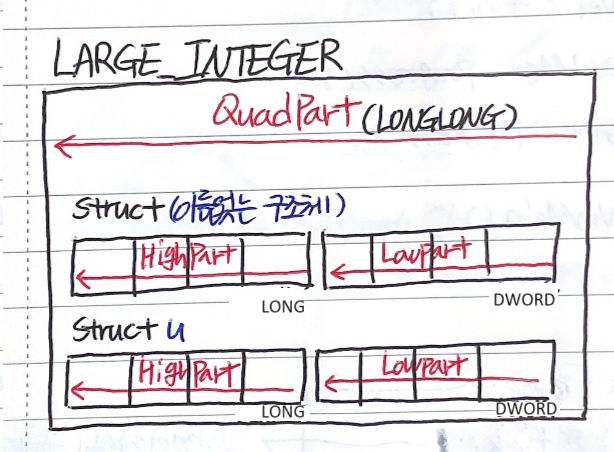 LARGE_INTEGER
QuadPart (LONGLONG)
struct (이름없는 구조체)
HighPart LowPart
LONG DWORD
Struct u
HighPart Lowpart
LONG DWORD